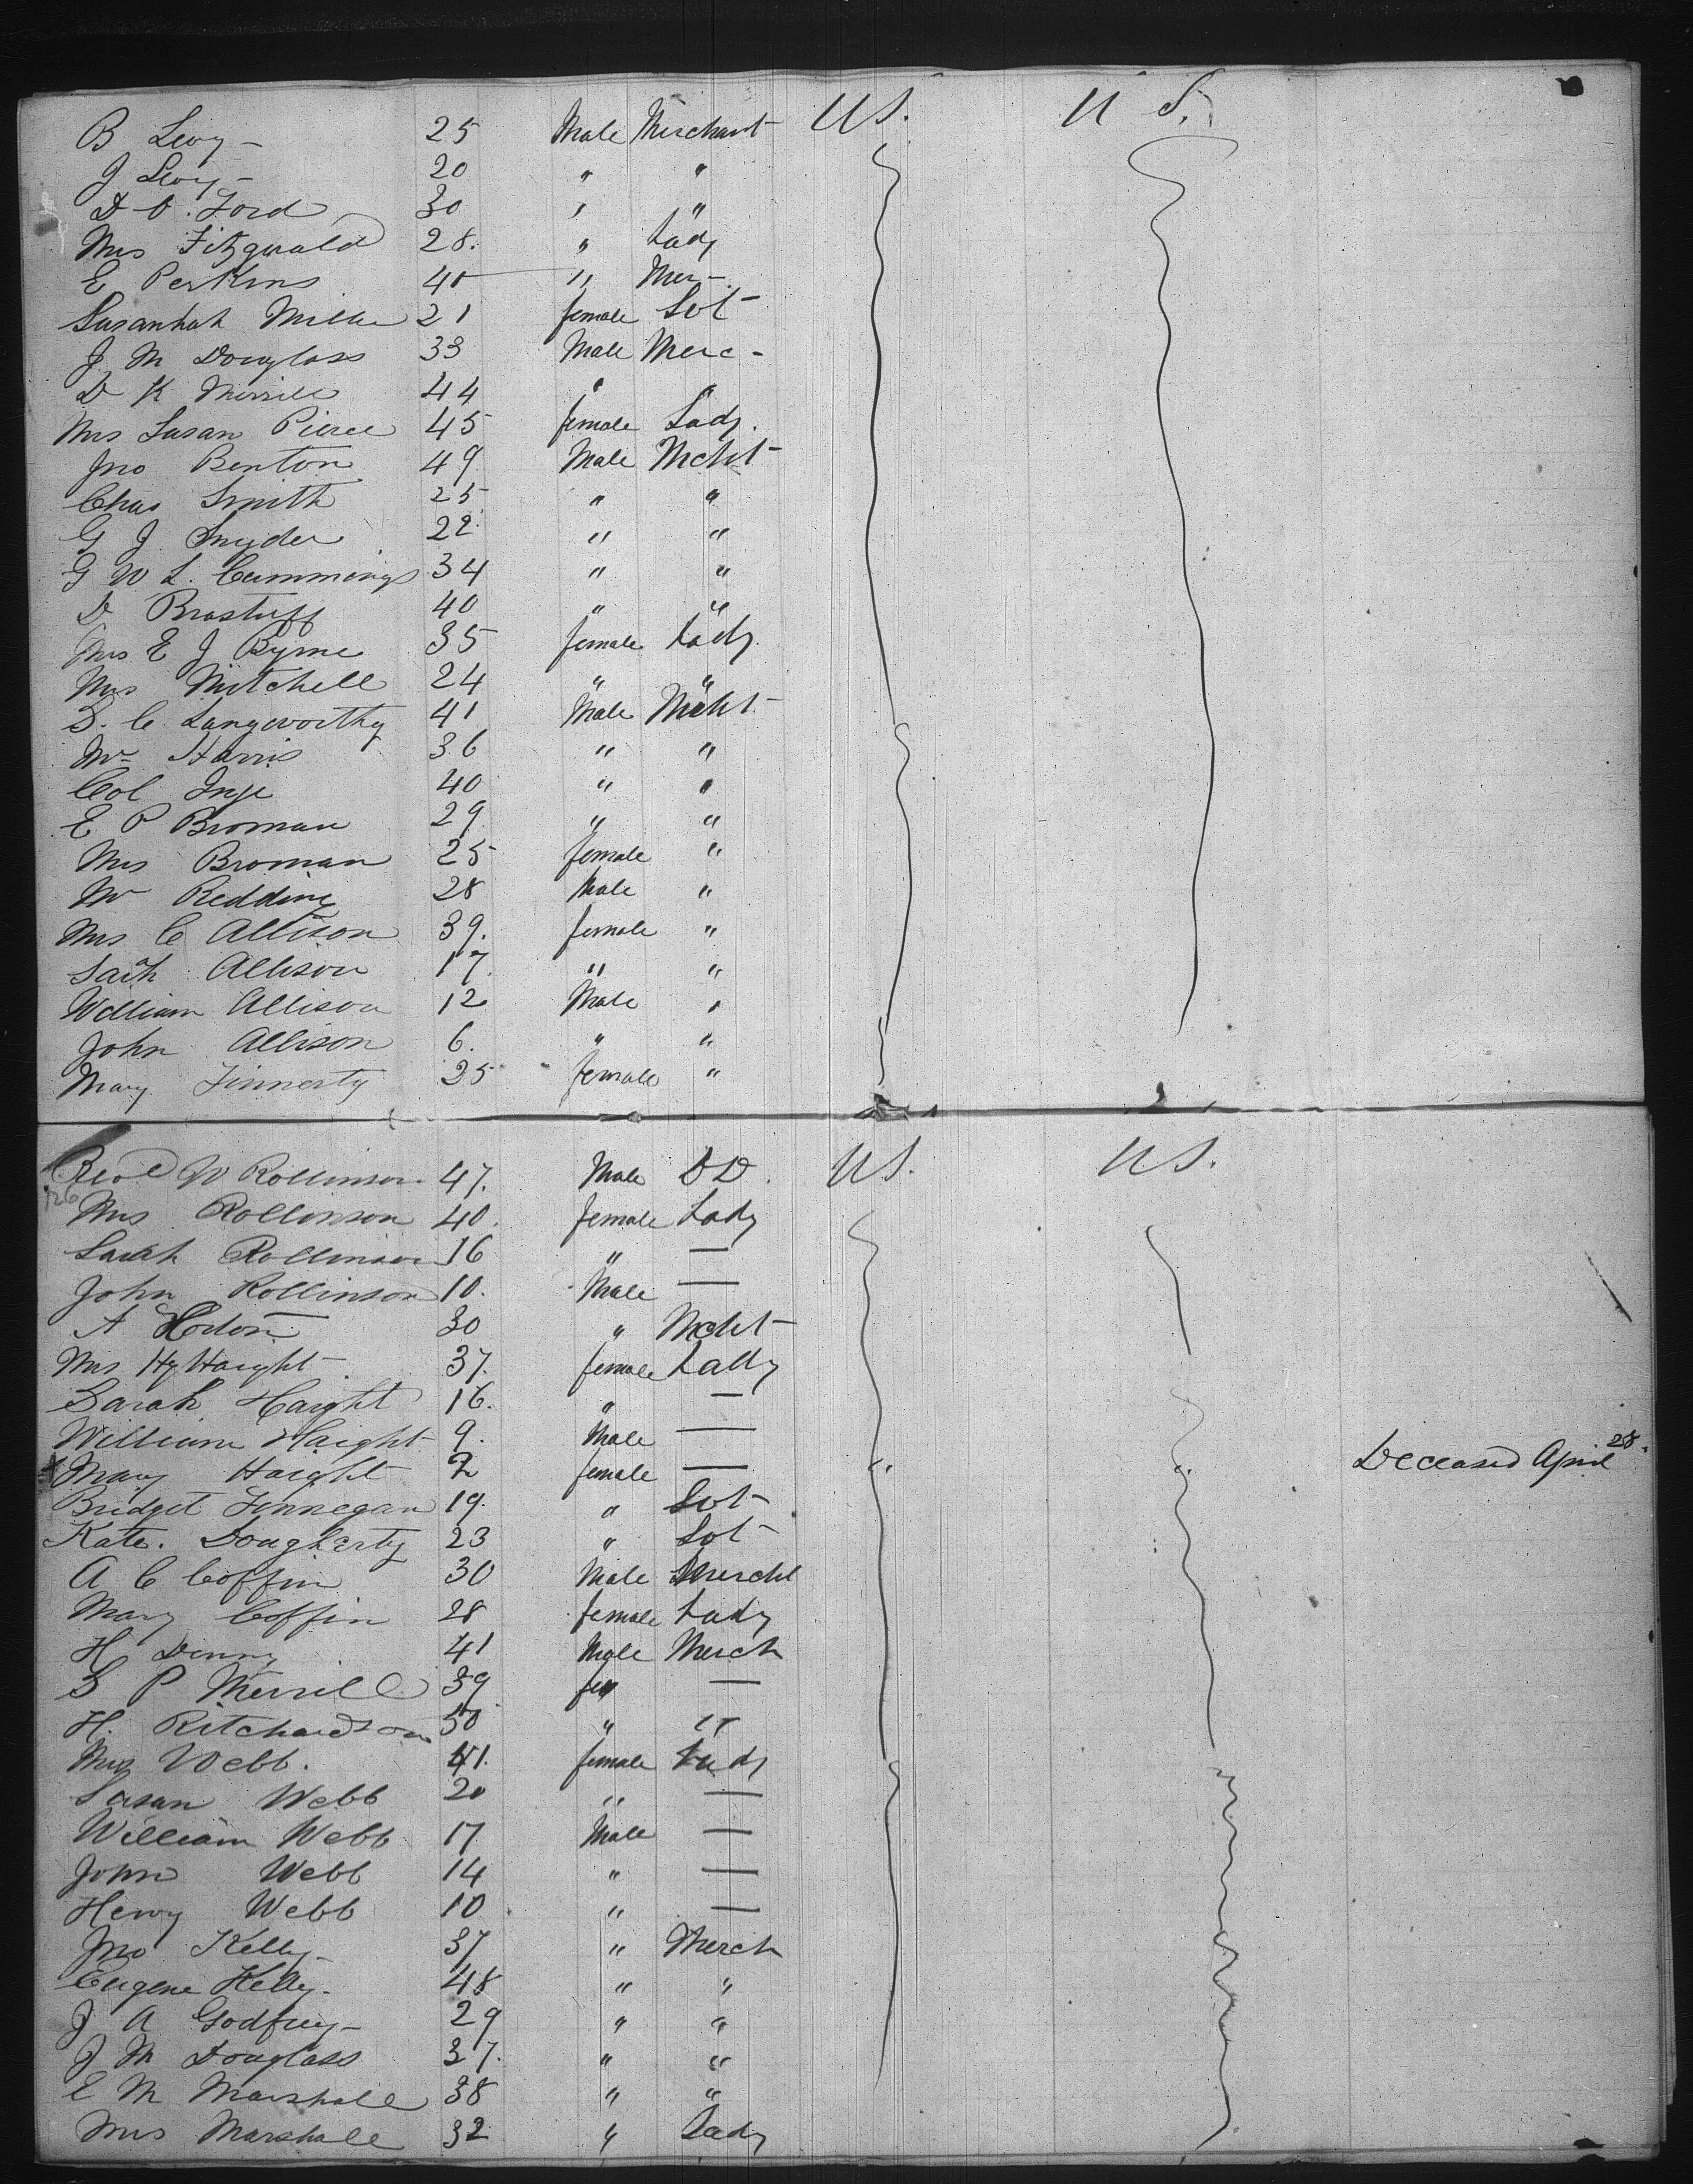 B Levy - 25 Male Merchant U S. U S.
J Levy - 20 " "
D O. Ford 30 " "
Mrs Fitzgerald 28. " Lady
E Perkins 40 " Mer -
Susanhah Miller 21 female Svt
J M Douglass 33 Male Merc -
D K Merrill 44 " "
Mrs Susan Pierce 45 female Lady.
Jno Benton 49 Male Mcht
Chas Smith 25 " "
G J Snyder 22 " "
G W L. Cummings 34 " "
D 40 " "
Mrs E J Byrne 35 female Lady.
Mrs Mitchell 24 " "
S. C. Langworthy 41 Male Mcht -
Mr Harris 36 " "
Col Inge 40 " "
E P Broman 29 " "
Mrs Broman 25 female "
Mr Redding 28 Male "
Mrs C Allison 39. female "
Sarh Allison 17. " "
William Allison 12 Male "
John Allison 6. " "
Mary Finnerty 25 female "
Revd W Rollinson 47. Male DD. U S. U S.
Mrs Rollinson 40. female Lady
Sarah Rollinson 16 " —
John Rollinson 10. Male —
A 30 " Mcht
Mrs Hy Haight 37. female Lady
Sarah Haight 16. " —
William Haight 9. Male —
x Mary Haight 2 female — Deceased April 28.
Bridget Finnegan 19. " Svt
Kate. Dougherty 23 " Svt
A C Coffin 30 Male Mercht
Mary Coffin 28 female Lady
H Denny 41 Male Merch
S P Merrill 39 —
H. Ritchardson 50 " "
Mrs Webb. 41. female Lady
Susan Webb 20 " —
William Webb 17 Male —
John Webb 14 " —
Henry Webb 10 " —
Jno Kelly - 37 " Merch
Eugene Kelly - 48 " "
J A Godfrey - 29 " "
J M Douglass 37. " "
E M Marshall 38 " "
Mrs Marshall 32 " Lady